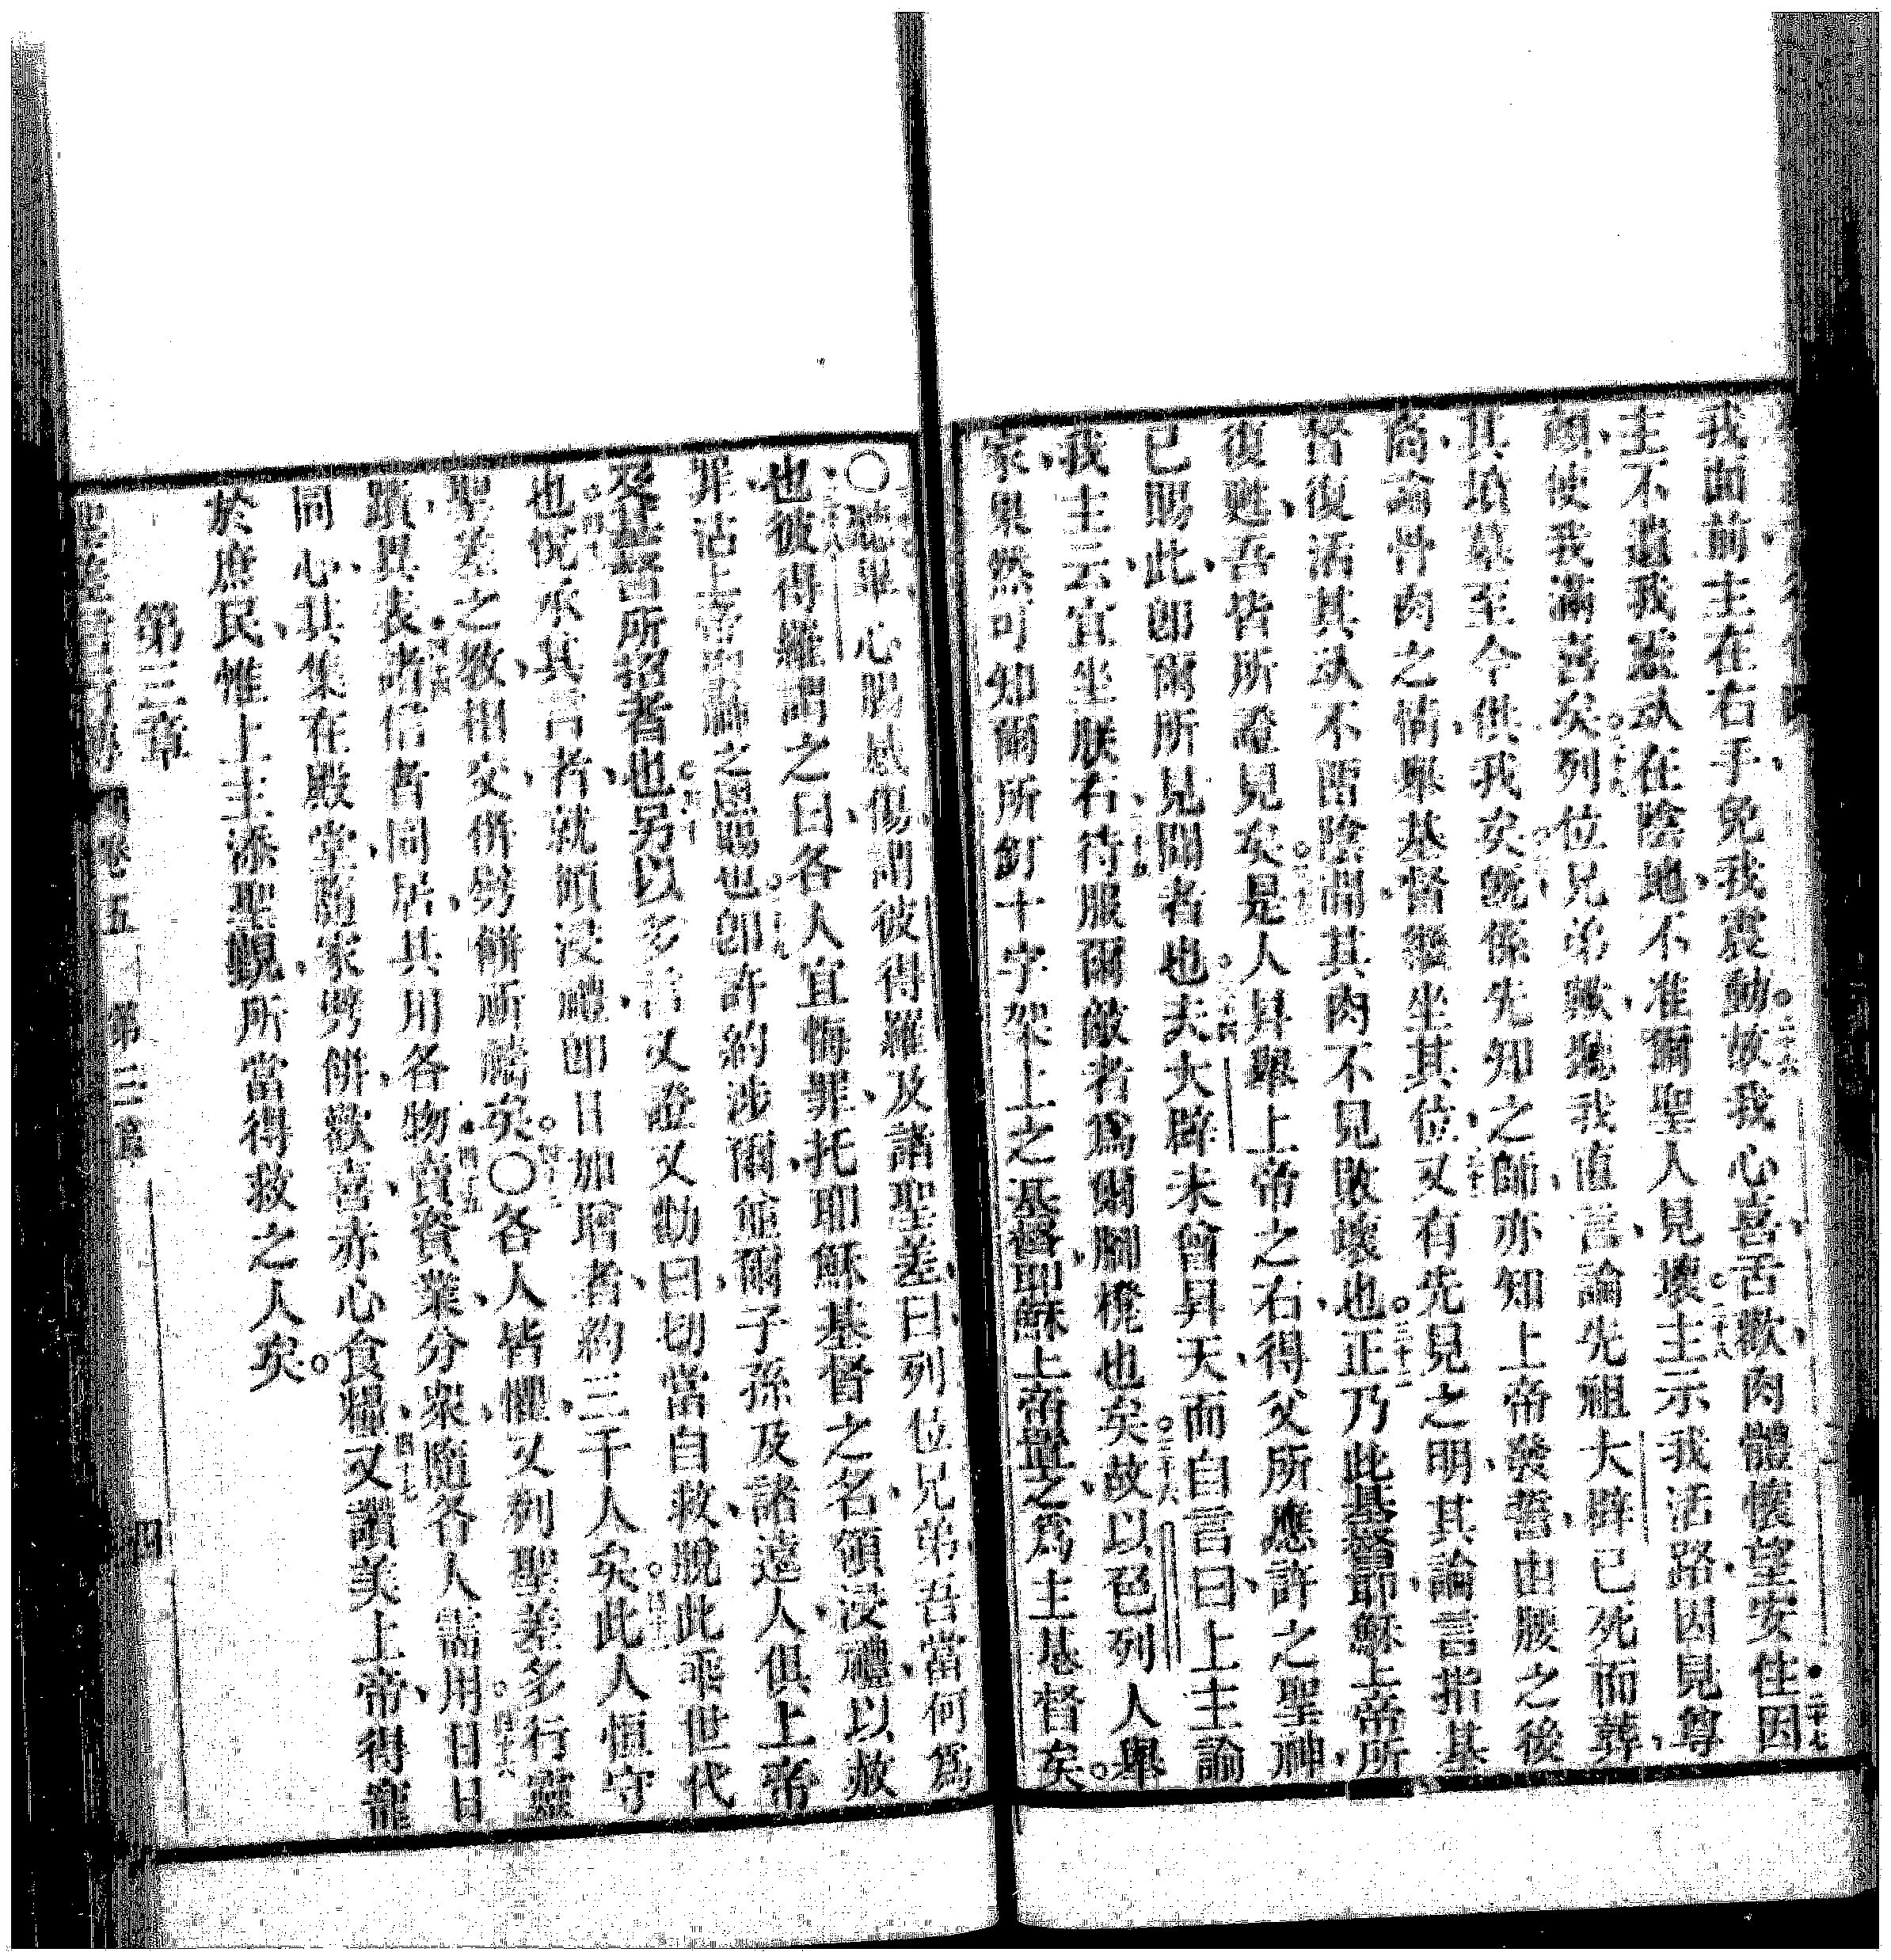 我面前主在右手免我震動故我心喜舌歡肉體懷望安住因
主不遺我靈䰟在陰地不准爾聖人見壞主示我活路因見尊
顏使我滿喜矣列位兄弟歟聽我直言論先祖大辟已死而葬
其墳墓至今供我矣旣係先知之師亦知上帝發誓由腰之後
裔論骨肉之情舉基督繼坐其位又有先見之明其論言指基
督復活其䰟不留陰間其肉不見敗壞也正乃此基督耶穌上帝所
復甦吾皆所證見矣是人昇舉上帝之右得父所應許之聖神
已賜此卽爾所見聞者也夫大辟未曾昇天而自言曰上主論
我主云宜坐朕右待服爾敵者爲爾腳櫈也矣故以色列人舉
家果然可知爾所釘十字架上之基督耶穌上帝置之爲主基督矣
○聽畢心腸感傷謂彼得羅及諸聖差曰列位兄弟吾當何爲
也彼得羅謂之曰各人宜悔罪托耶穌基督之名領浸禮以赦
罪沾上帝聖神之恩賜也卽許約涉爾並爾子孫及諸遠人俱上帝
及基督所招者也另以多言又證又勸曰切當自救脫此乖世代
也悅承其言者就領浸禮卽日加增者約三千人矣此人恒守
聖差之教相交併劈餅祈禱矣○各人皆懼又列聖差多行靈
蹟異表諸信者同居共用各物賣資業分衆隨各人需用日日
同心其集在殿堂隨家劈餅歡喜赤心食糧又讚美上帝得寵
於庶民惟上主添聖會所當得救之人矣
第三章
卷五 第三章 四